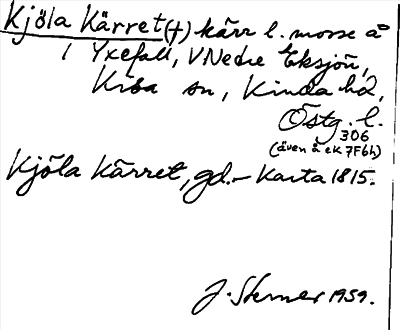 Kjöla Kärret (†) kärr l. mosse å
i Yxefall, V Nedre Eksjön,
Kisa sn, Kinda hd,
Östg. l.
306
(även å ek 7F6h)
Kjöla Kärret, gd. – Karta 1815.
J. Sterner 1959.